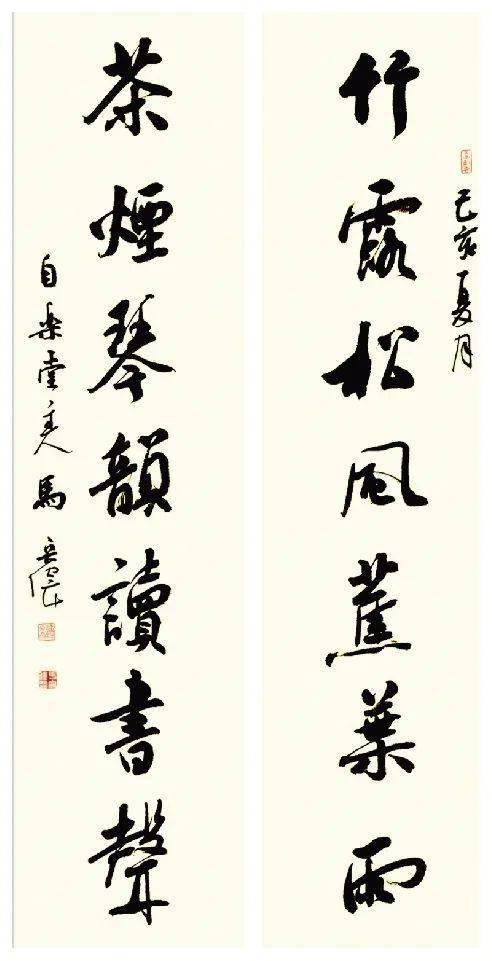 己亥夏月
竹露松風蕉葉雨
茶煙琴韻讀書聲
自樂堂主人馬